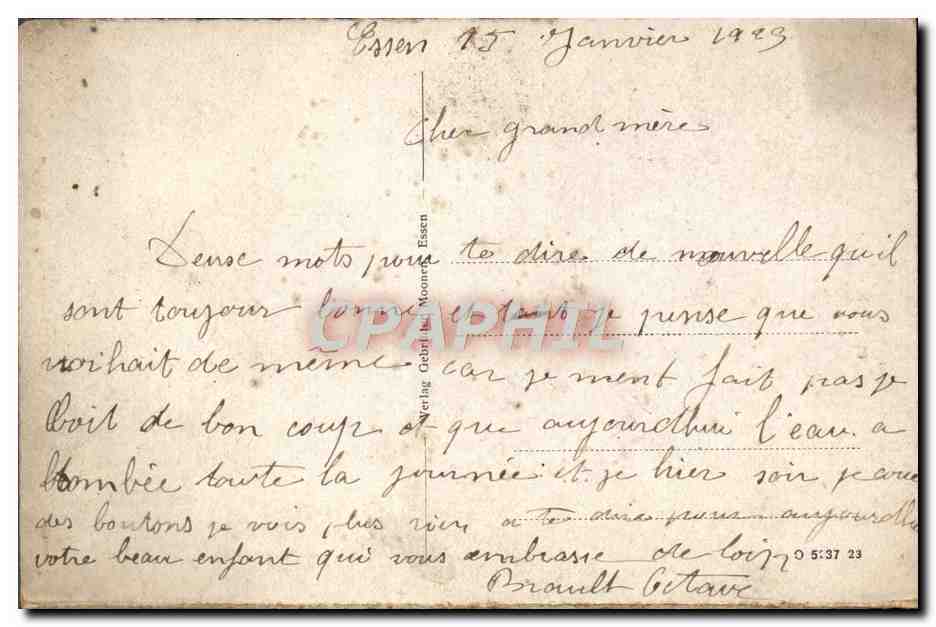 Essen 15 Janvier 1923
Cher grand mère
Deuse mots pour te dire de nouvelle qu'il
sont toujour bonne et tant je pense que vous
de même car je ment fait pas je
boit de bon coup et que aujourdhui l'eau a
tombée toute la journée et je hier soir je
des boutons je vois plus rien a te dire pour aujourdhu
votre beau enfant qui vous embrasse de loin
Brault Octave
Verlag Gebr. Moonen, Essen
O 5:37 23
CPAPHIL